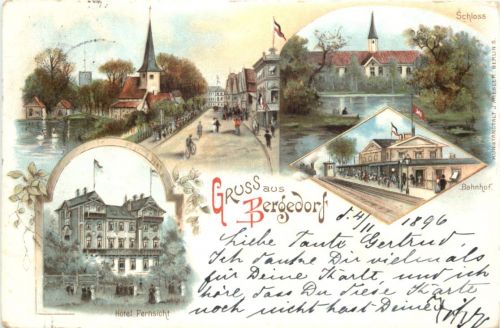 Schloss
Bahnhof.
Gruss aus
Bergedorf
Hôtel Fernsicht
d. 4/11 1896
Liebe Tante Gertrud
Ich danke Dir vielmals
für Deine Karte und ich
höre, dass Du diese Karte
noch nicht hast Deine